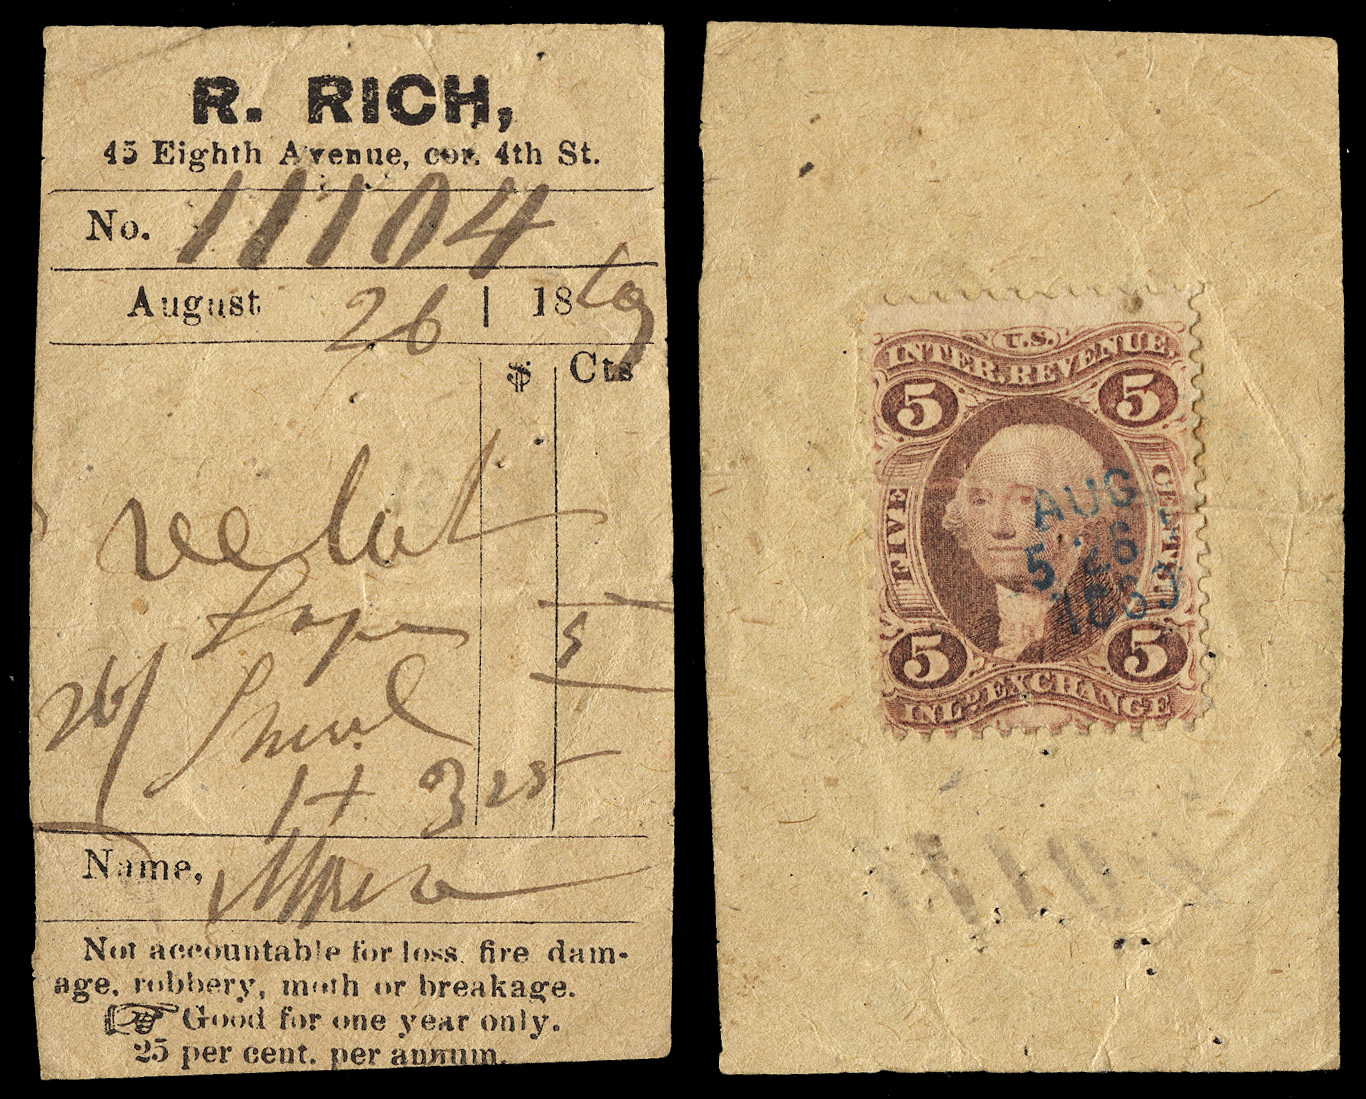 R. RICH,
45 Eighth Avenue, cor. 4th St.
No. 11104
August 26 1869
$ Cts
5
26/
1+ 3 25
Name,
Not accountable for loss, fire dam-
age, robbery, moth or breakage.
☞ Good for one year only.
25 per cent. per annum.
U.S.
INTER. REVENUE.
5 5
FIVE CENTS.
AUG
5 26
1869
5 5
INL'D EXCHANGE